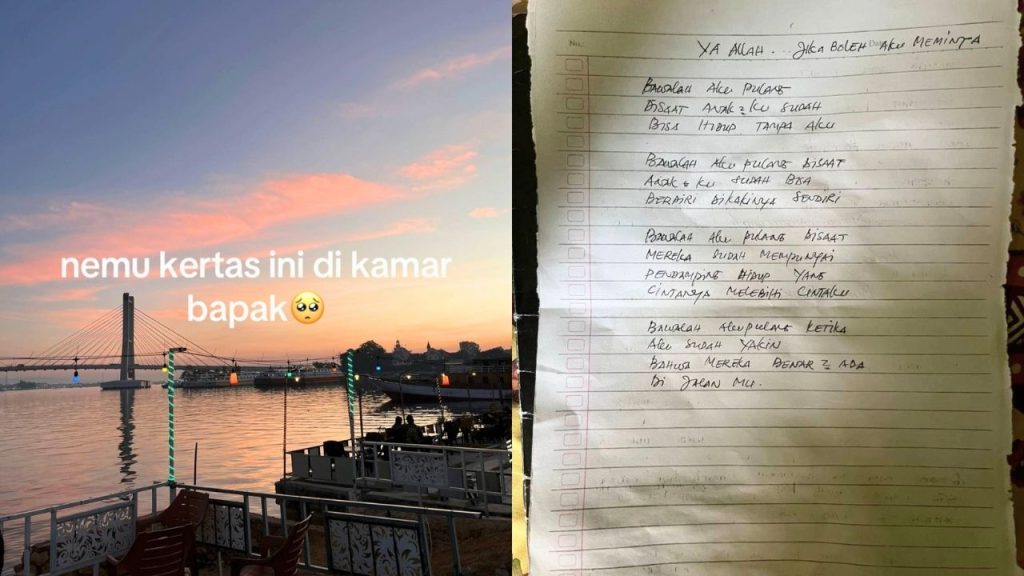 nemu kertas ini di kamar
bapak🥺
No.
YA ALLAH... JIKA BOLEH AKU MEMINTA
BAWALAH AKU PULANG
DISAAT ANAK2 KU SUDAH
BISA HIDUP TAMPA AKU
BAWALAH AKU PULANG DISAAT
ANAK2 KU SUDAH BISA
BERDIRI DIKAKINYA SENDIRI
BAWALAH AKU PULANG DISAAT
MEREKA SUDAH MEMPUNYAI
PENDAMPING HIDUP YANG
CINTANYA MELEBIHI CINTAKU
BAWALAH AKU PULANG KETIKA
AKU SUDAH YAKIN
BAHWA MEREKA BENAR2 ADA
DI JALAN MU.